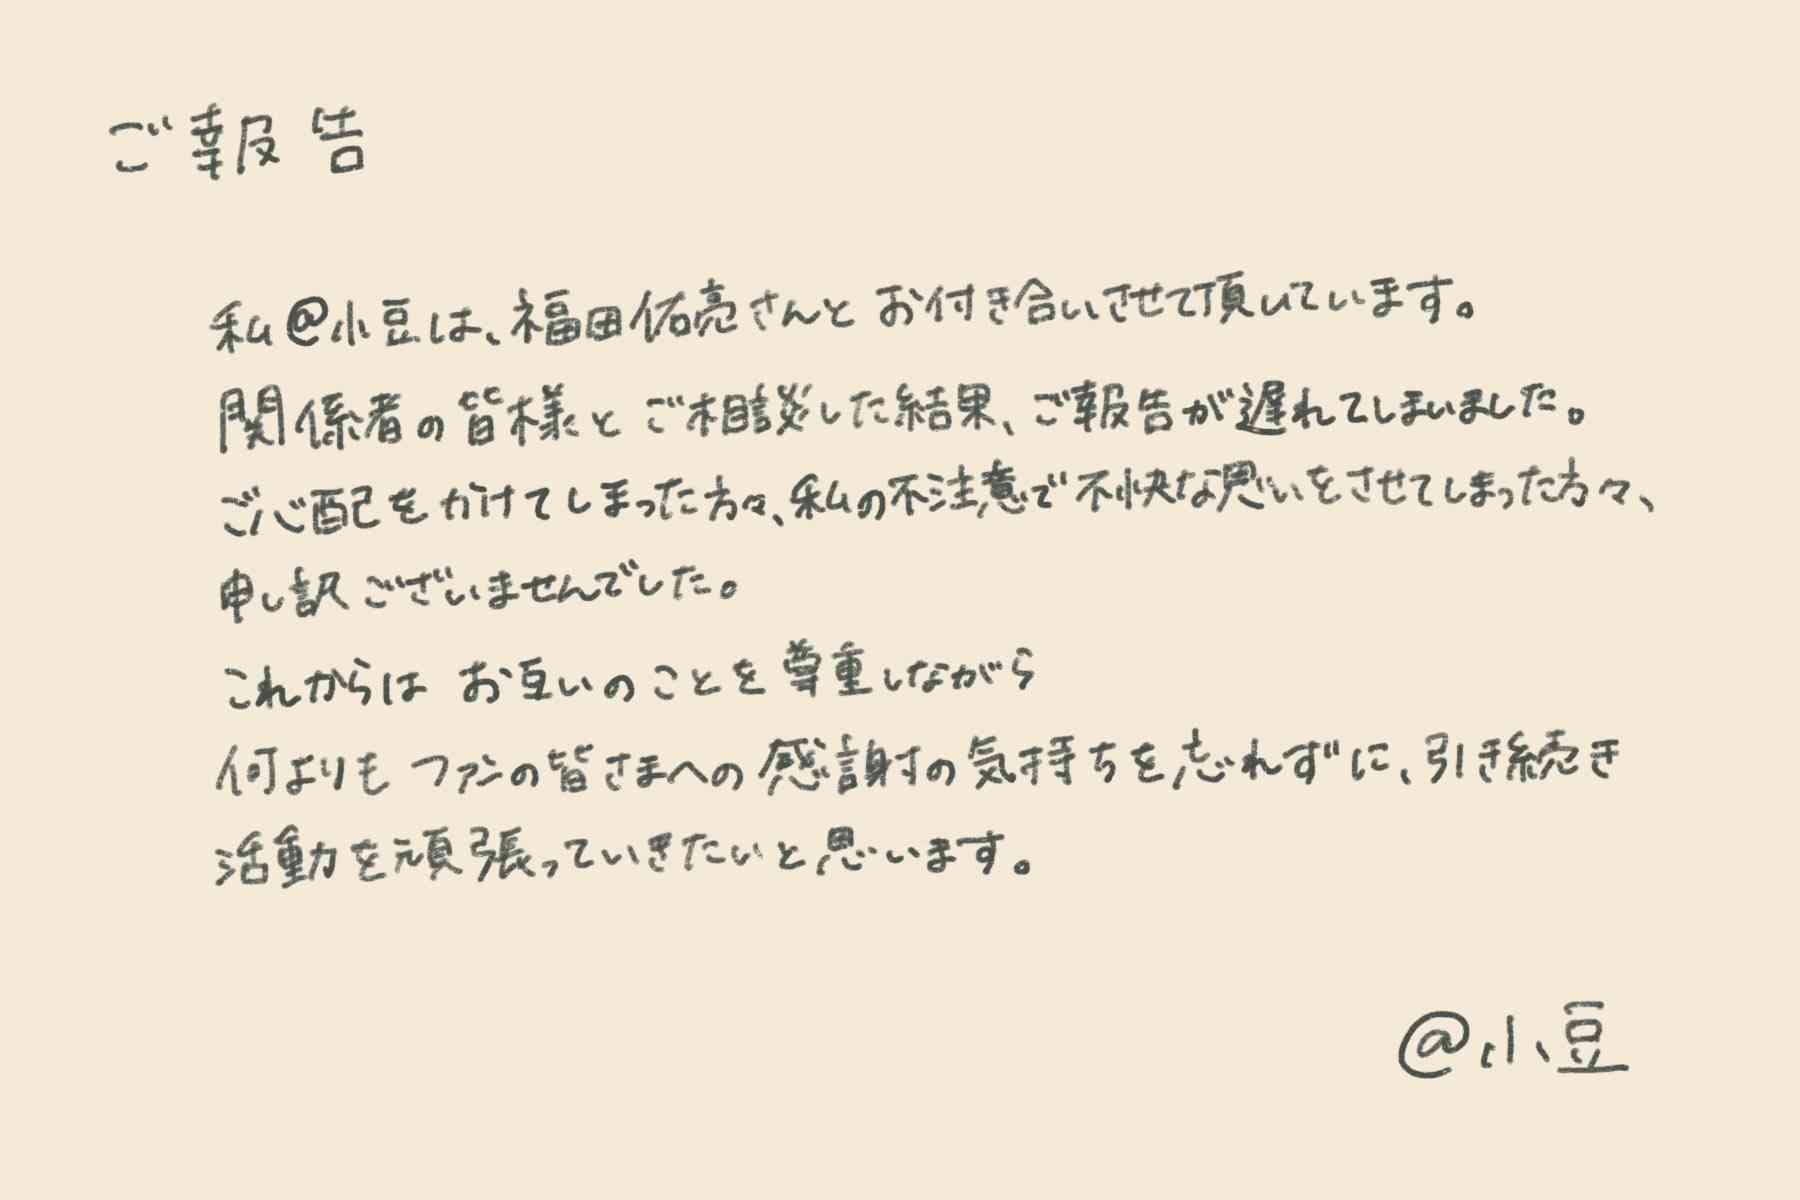 ご報告
私@小豆は、福田佑亮さんとお付き合いさせて頂いています。
関係者の皆様とご相談した結果、ご報告が遅れてしまいました。
ご心配をかけてしまった方々、私の不注意で不快な思いをさせてしまった方々、
申し訳ございませんでした。
これからは お互いのことを尊重しながら
何よりも ファンの皆さまへの感謝の気持ちを忘れずに、引き続き
活動を頑張っていきたいと思います。
@小豆